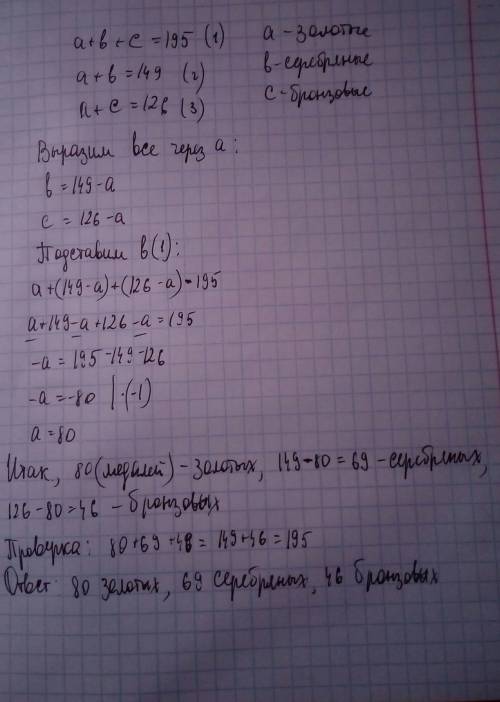 a+b+c=195 (1)   a - золотые
a+b=149 (2)   b - серебряные
a+c=126 (3)   c - бронзовые
Выразим все через a:
b=149-a
c=126-a
Подставим в (1):
a+(149-a)+(126-a)=195
a+149-a+126-a=195
-a=195-149-126
-a=-80 |·(-1)
a=80
Итак, 80(медалей) - золотых, 149-80=69 - серебряных,
126-80=46 - бронзовых
Проверка: 80+69+46=149+46=195
Ответ: 80 золотых, 69 серебряных, 46 бронзовых